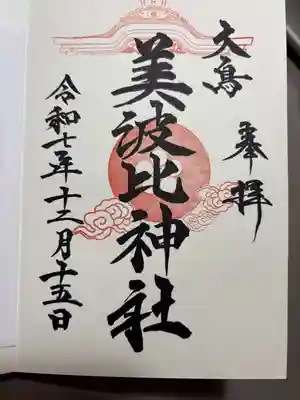 奉拝
大鳥
美波比神社
令和七年十二月十五日